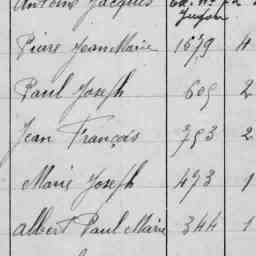 Antoine Jacques
Piere Jean Marie 1679 4
Paul Joseph 605 2
Jean François 753 2
Marie Joseph 473 1
Albert Paul Marie 344 1